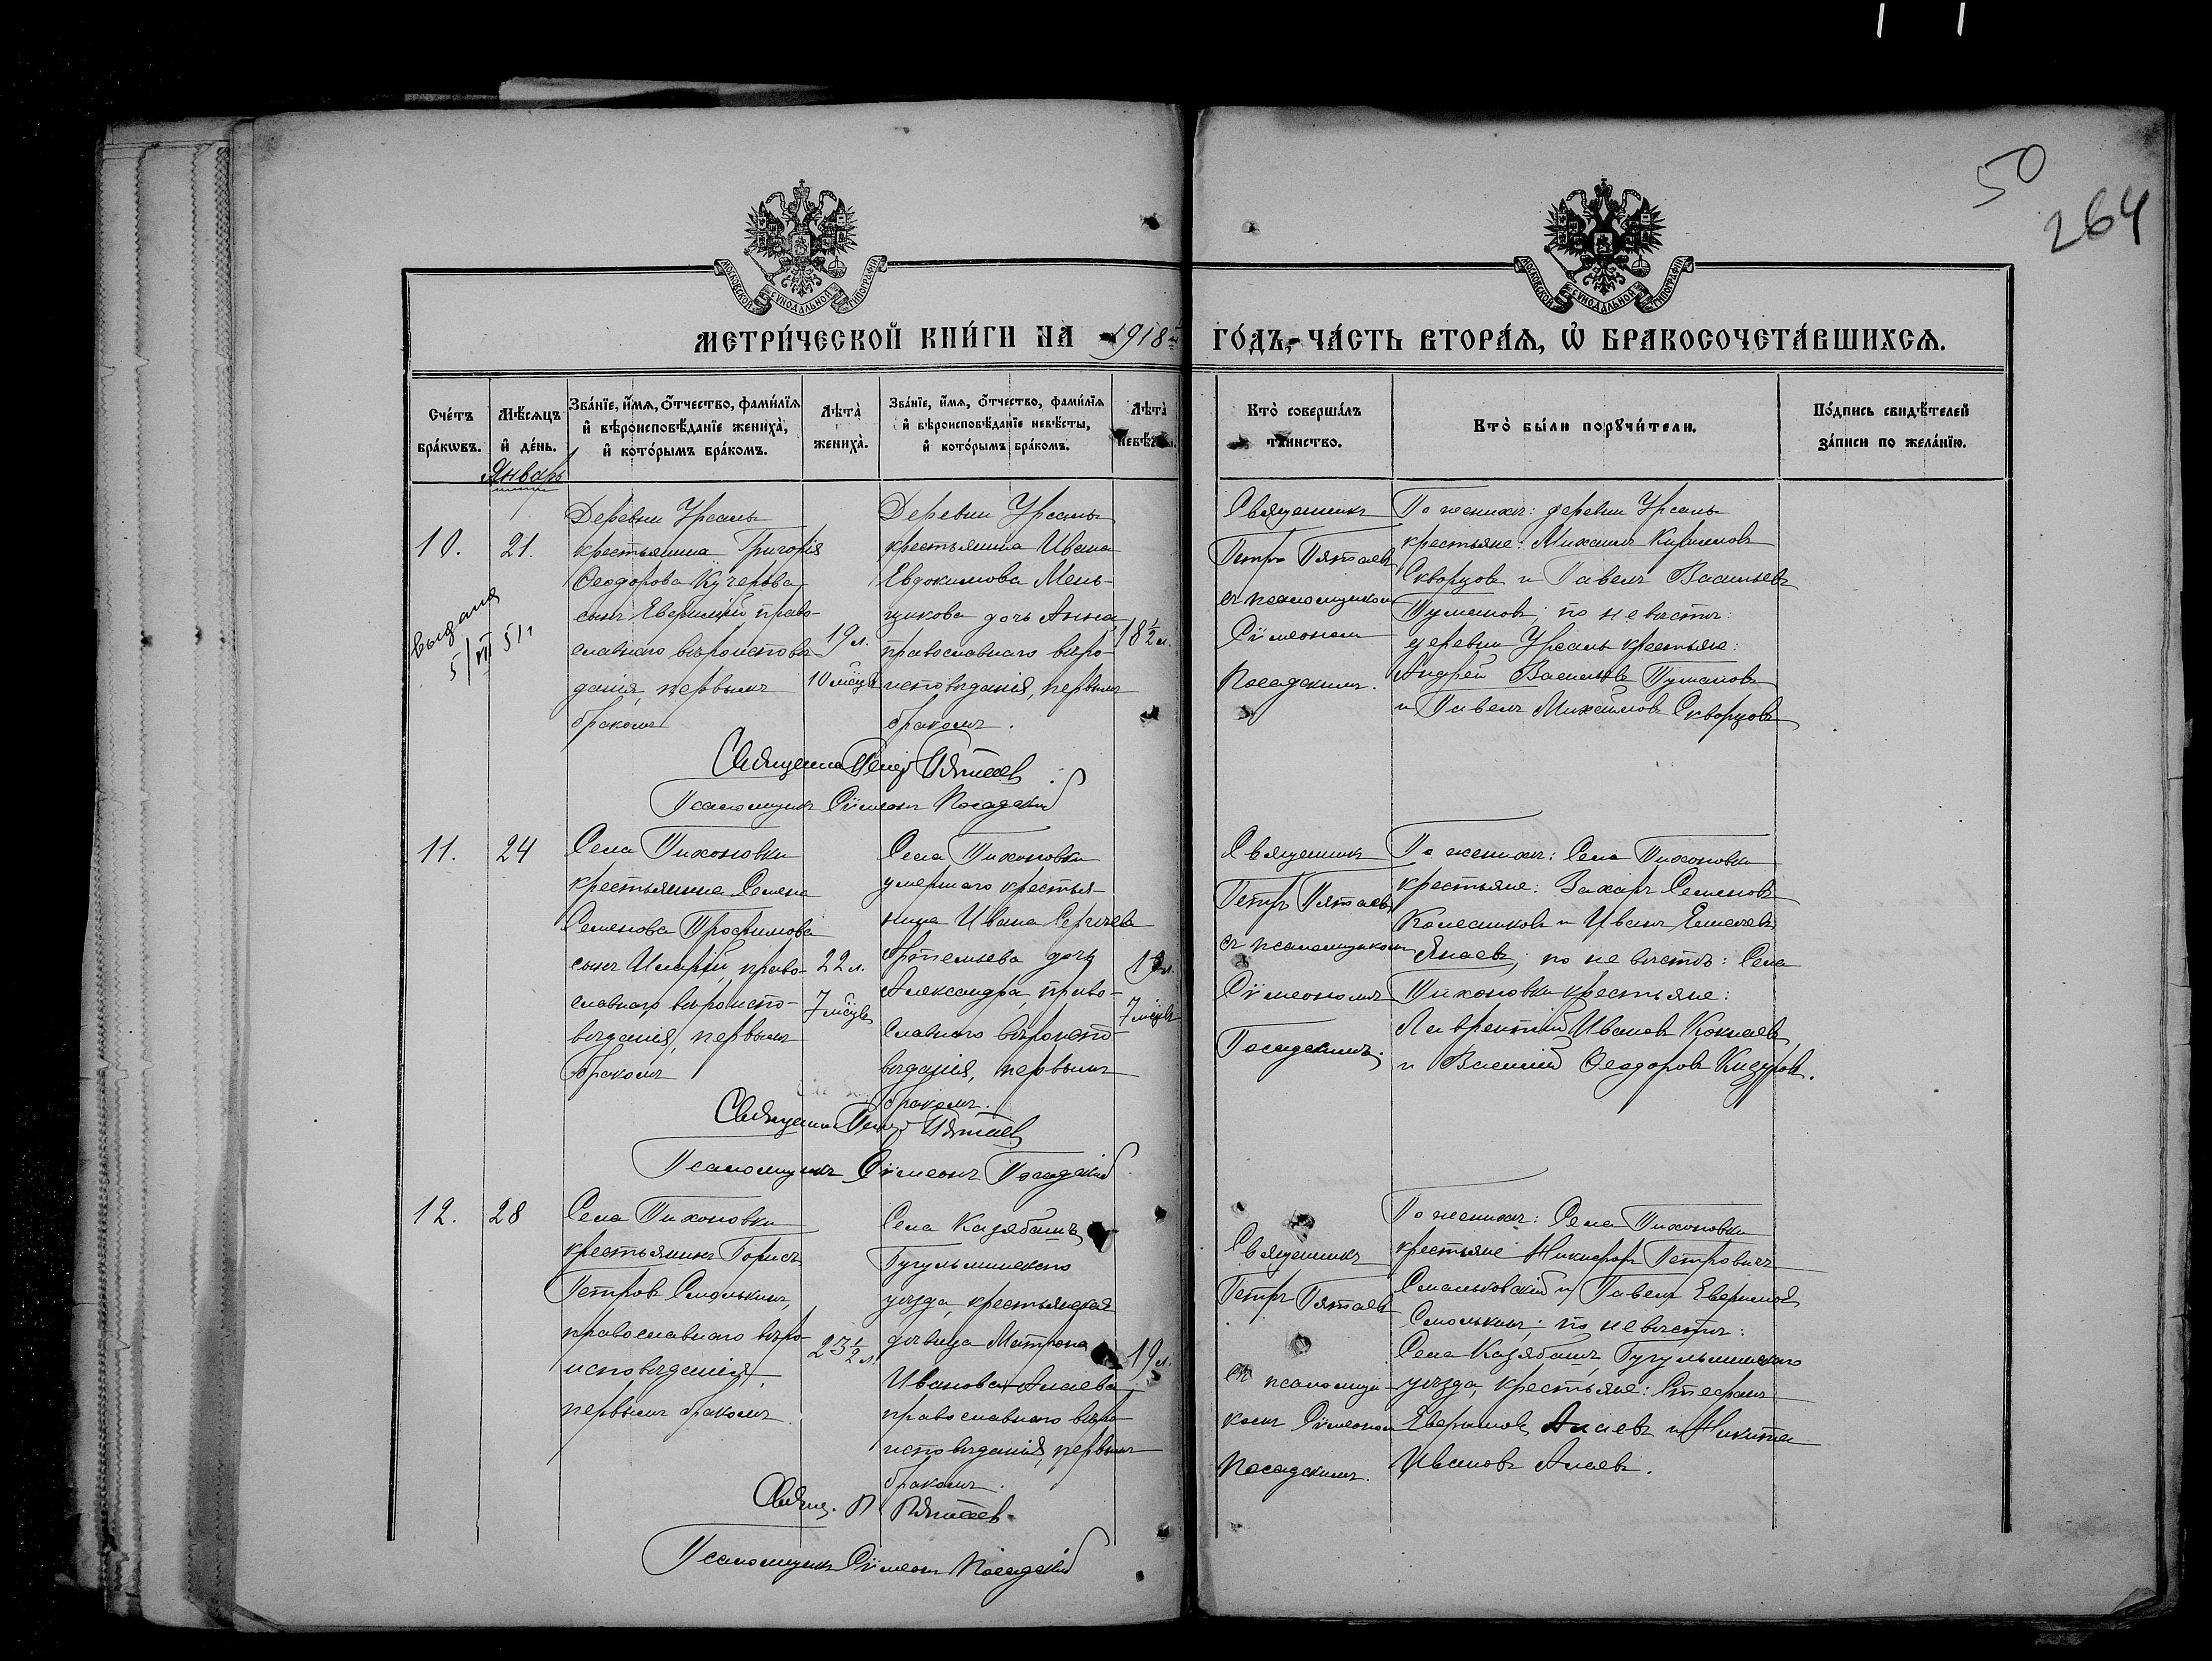 50
264
МОСКОВСКОЙ СУНОДАЛЬНОЙ ТИПОГРАФІИ
МОСКОВСКОЙ СУНОДАЛЬНОЙ ТИПОГРАФІИ
МЕТРИ́ЧЕСКОЙ КНИ́ГИ НА 1918 й ГО́ДЪ, ЧА́СТЬ ВТОРА́Ѧ, Ѽ БРАКОСОЧЕТА́ВШИХСѦ.
Сче́тъ бра́кѡвъ.
Мѣ́сѧцъ и҆ де́нь.
Зва́нїе, и҆́мѧ, ѻ҆́тчество, фами́лїѧ и҆ вѣроисповѣ́данїе жениха̀, и҆ кото́рымъ бра́комъ.
Лѣта̀ жениха̀.
Зва́нїе, и҆́мѧ, ѻ҆́тчество, фами́лїѧ и҆ вѣроисповѣ́данїе невѣ́сты, и҆ кото́рымъ бра́комъ.
Лѣта̀ невѣ́сты.
Кто̀ соверша́лъ та́инство.
Кто̀ бы́ли порꙋчи́тели.
По́дпись свидѣ́телей за́писи по жела́нїю.
Январь
10.
21.
выдана
5/VII 51 г
Деревни Урсалы
крестьянина Григорія
Ѳеодорова Кучерова
сынъ Евфимій право-
славнаго вѣроисповѣ-
данія, первымъ
бракомъ
19 л.
10 мѣсяц
Деревни Урсалы
крестьянина Ивана
Евдокимова Мень-
щикова дочь Анна,
православнаго вѣро-
исповѣданія, первымъ
бракомъ.
18 ½ л.
Священникъ
Петръ Пятаевъ
съ псаломщикомъ
Сѵмеономъ
Посадскимъ.
По женихѣ: деревни Урсалы
крестьяне: Михаилъ Кирилловъ
Скворцовъ и Павелъ Васильевъ
Тумановъ; по невѣстѣ:
деревни Урсалы крестьяне:
Андрей Васильевъ Тумановъ
и Павелъ Михайловъ Скворцовъ
Священникъ Петръ Пятаевъ
Псаломщикъ Сѵмеонъ Посадскій
11.
24
Села Тихоновки
крестьянина Семена
Семенова Трофимова
сынъ Иларій, право-
славнаго вѣроиспо-
вѣданія, первымъ
бракомъ
22 л.
7 мѣсяц
Села Тихоновки
умершаго крестья-
нина Ивана Сергѣева
Артемьева дочь
Александра право-
славнаго вѣроиспо-
вѣданія, первымъ
бракомъ.
7 мѣсяц
Священникъ
Петръ Пятаевъ
съ псаломщикомъ
Сѵмеономъ
Посадскимъ.
По женихѣ: Села Тихоновки
крестьяне: Захаръ Семеновъ
Колесниковъ и Иванъ
Янаевъ; по невѣстѣ: Села
Тихоновки крестьяне:
Лаврентій Ивановъ
и Василій Ѳеодоровъ
Священникъ Петръ Пятаевъ
Псаломщикъ Сѵмеонъ Посадскій
12.
28
Села Тихоновки
крестьянинъ Борисъ
Петровъ Смолькинъ,
православнаго вѣро-
исповѣданія,
первымъ бракомъ
23 ½ л.
Села Казябашъ
Бугульминскаго
уѣзда, крестьянская
дѣвица Матрона
Иванова Алаева
православнаго вѣро-
исповѣданія, первымъ
бракомъ.
19 л.
Священникъ
Петръ Пятаевъ
съ псаломщи-
комъ Сѵмеономъ
Посадскимъ.
По женихѣ: Села Тихоновки
крестьяне Никифоръ Петровичъ
Смольковскій и Павелъ Евфимовъ
Смолькинъ; по невѣстѣ:
Села Казябашъ, Бугульминскаго
уѣзда, крестьяне: Стефанъ
Евфимовъ Алаевъ и Никита
Ивановъ Алаевъ.
Свящ. П Пятаевъ
Псаломщикъ Сѵмеонъ Посадскій